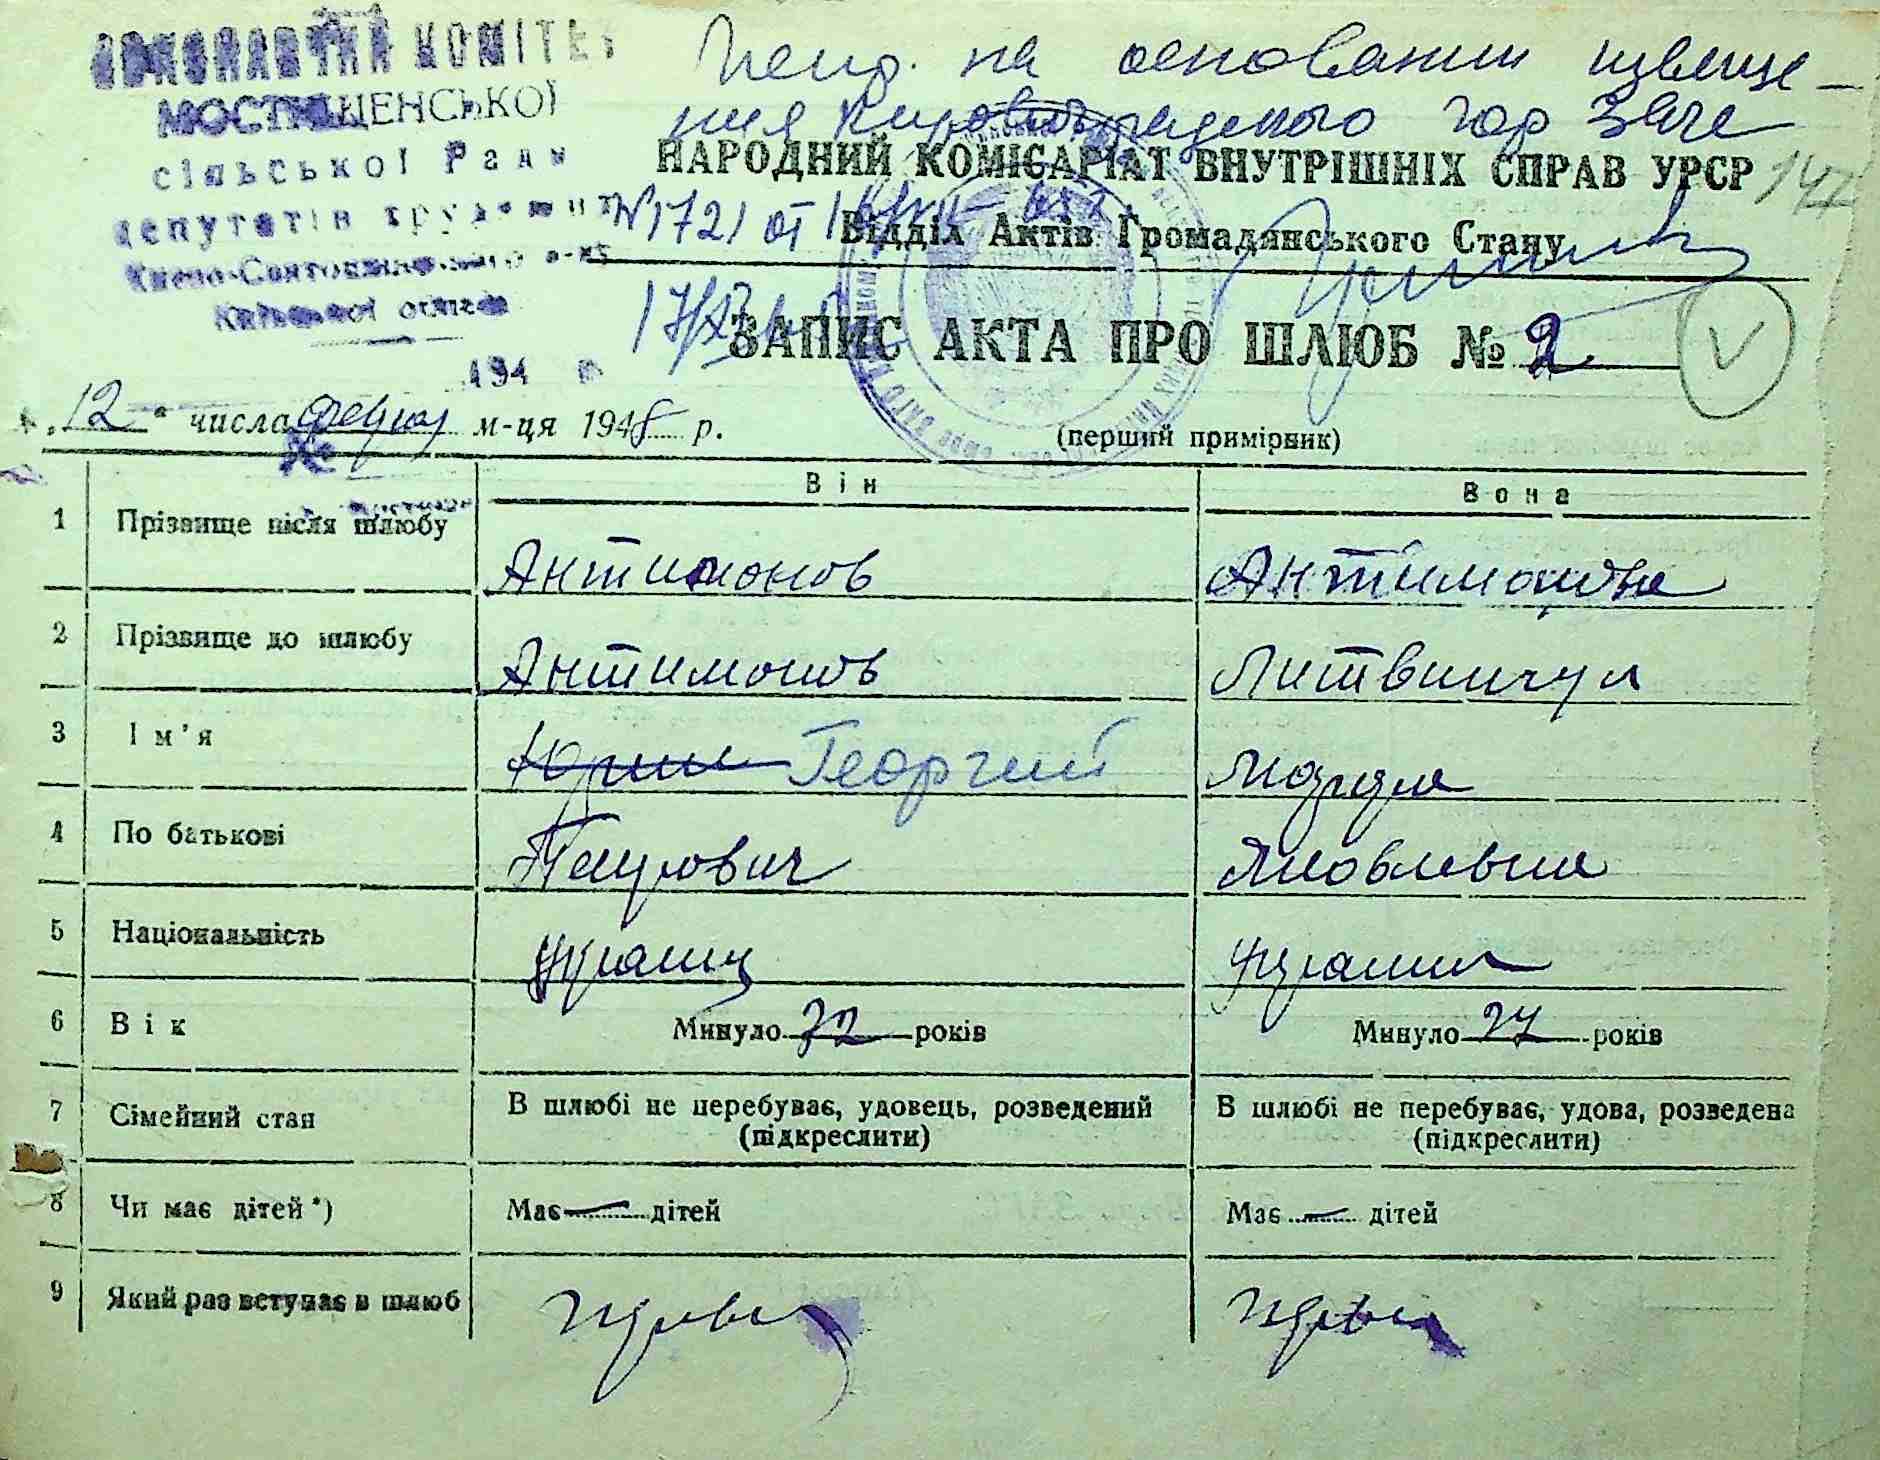 ВИКОНАВЧИЙ КОМІТЕТ
МОСТИЩЕНСЬКОЇ
сільської Ради
депутатів трудящих
Києво-Святошинського р-ну
Київської області
194 р.
Испр. на основании извеще-
ния Кировоградского гор Загс
НАРОДНИЙ КОМІСАРІАТ ВНУТРІШНІХ СПРАВ УРСР
147
№ 1721 от
Відділ Актів Громадянського Стану
ЗАПИС АКТА ПРО ШЛЮБ № 2
„12" числа м-ця 1948 р.
(перший примірник)
Він
Вона
1 Прізвище після шлюбу Антимонов Антимонова
2 Прізвище до шлюбу Антимонов Литвинчук
3 Ім'я Юрий Георгий
4 По батькові Петрович Яковлевна
5 Національність украинц украинка
6 Вік Минуло 32 років Минуло 27 років
7 Сімейний стан В шлюбі не перебуває, удовець, розведений (підкреслити) В шлюбі не перебуває, удова, розведена (підкреслити)
8 Чи має дітей*) Має — дітей Має — дітей
9 Який раз вступає в шлюб первый первый